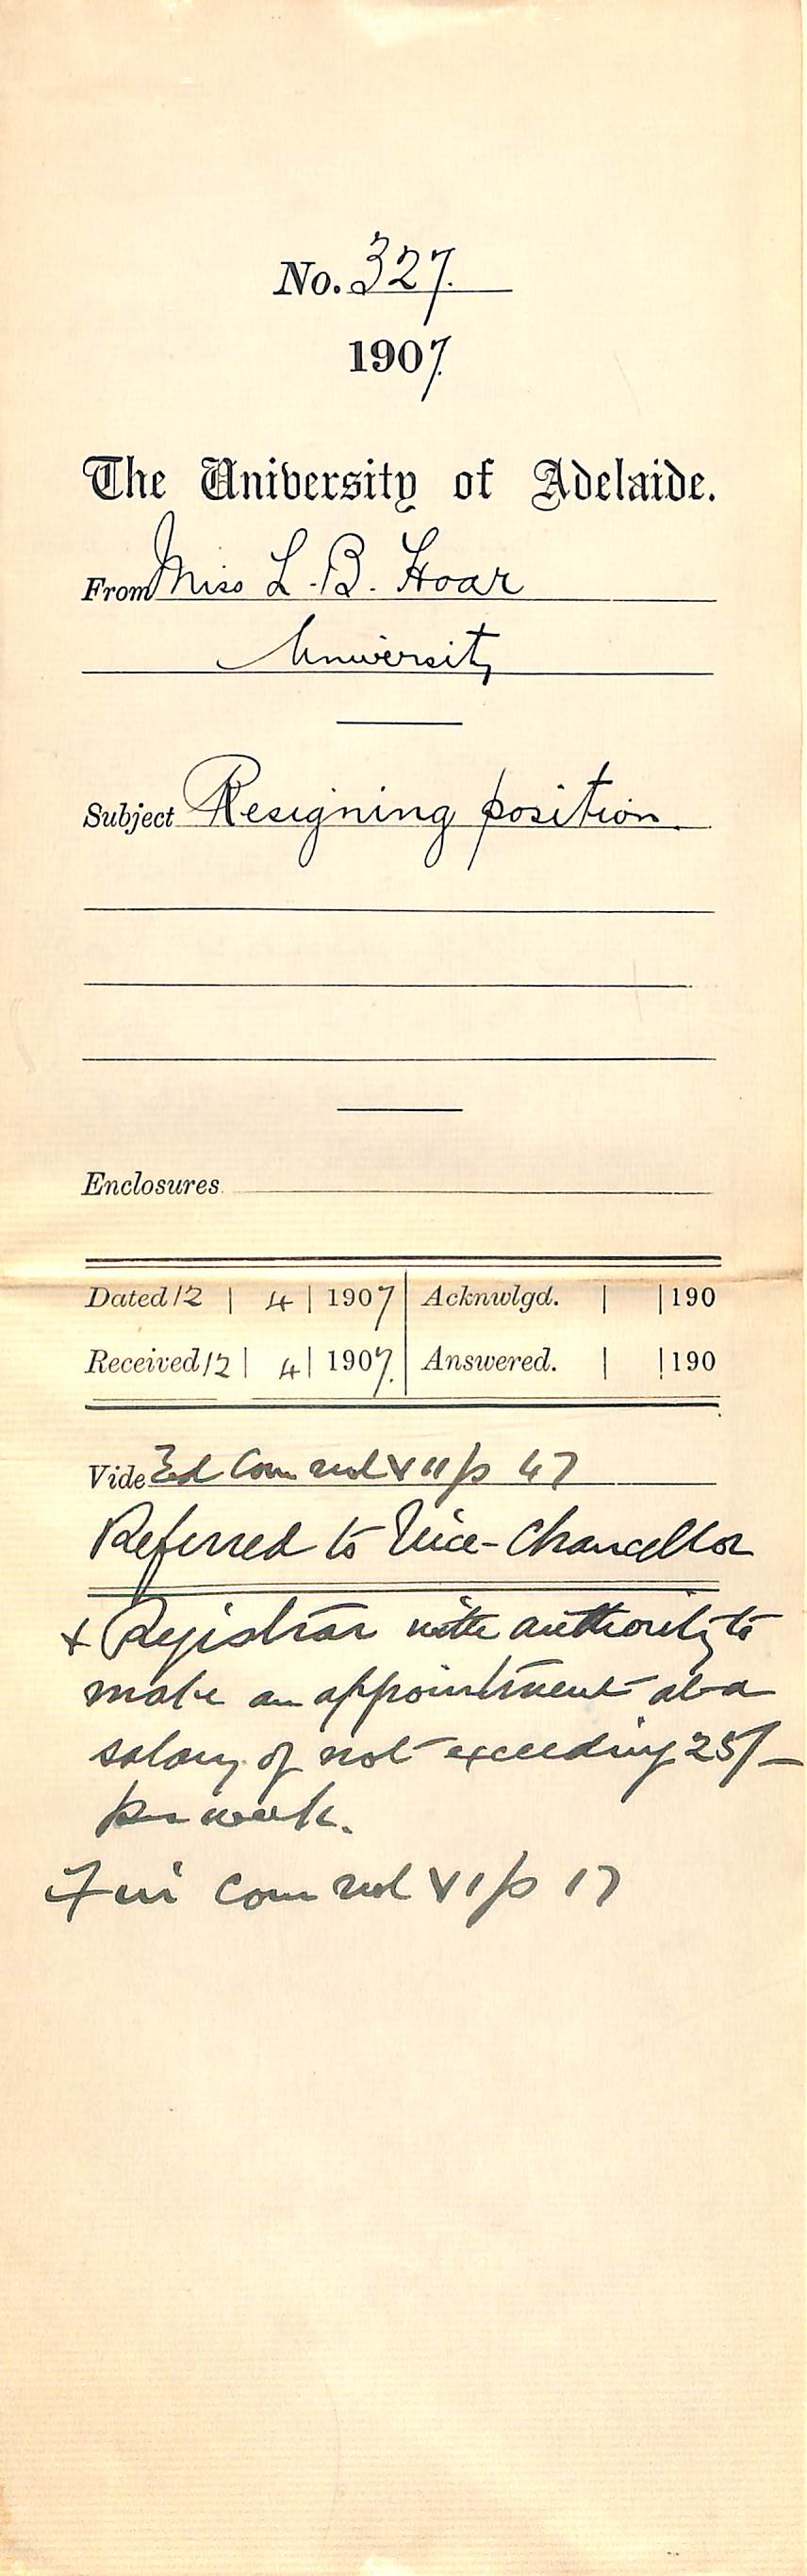 No. 327.
1907.
The University of Adelaide.
From Miss L. B. Hoar
University
Subject Resigning position.
Enclosures
Dated 12 | 4 | 1907 | Acknwlgd. | | 190
Received 12 | 4 | 1907. | Answered. | | 190
Vide Ed Com vol VII/p 47
Referred to Vice-Chancellor
+ Registrar with authority to
make an appointment at a
salary of not exceeding 25/-
per week.
Fin Com vol VI/p 17